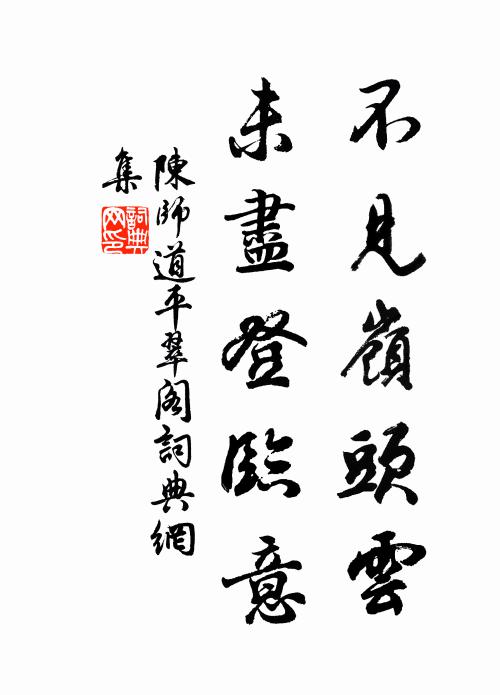 不見嶺頭雲
未盡登臨意
陳師道平翠閣詞典網
集
詞典
网印